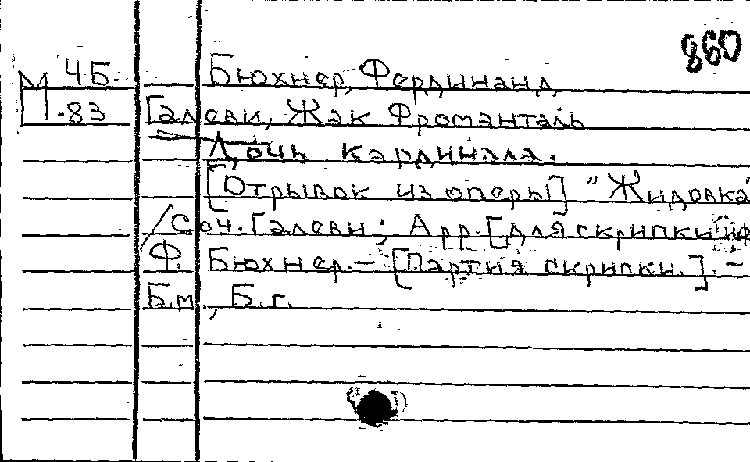 860
М 4Б Бюхнер, Фердинанд
-83 Галеви, Жак Фроманталь
Дочь кардинала.
[Отрывок из оперы] "Жидовка"
/Соч. Галеви; Арр. [для скрипки и ф
Ф. Бюхнер. – [Партия скрипки.]. –
Б.м., Б.г.